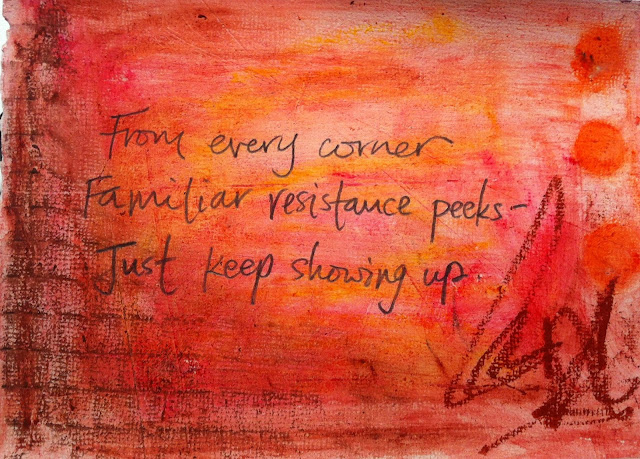 From every corner
Familiar resistance peeks-
Just keep showing up